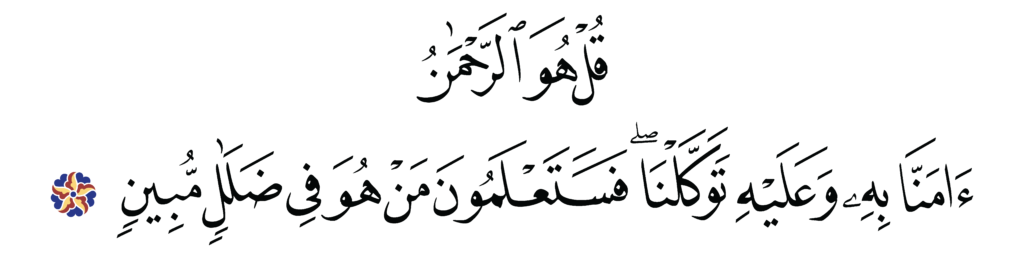 قُلْ هُوَ ٱلرَّحْمَٰنُ
ءَامَنَّا بِهِۦ وَعَلَيْهِ تَوَكَّلْنَا ۖ فَسَتَعْلَمُونَ مَنْ هُوَ فِى ضَلَٰلٍ مُّبِينٍ